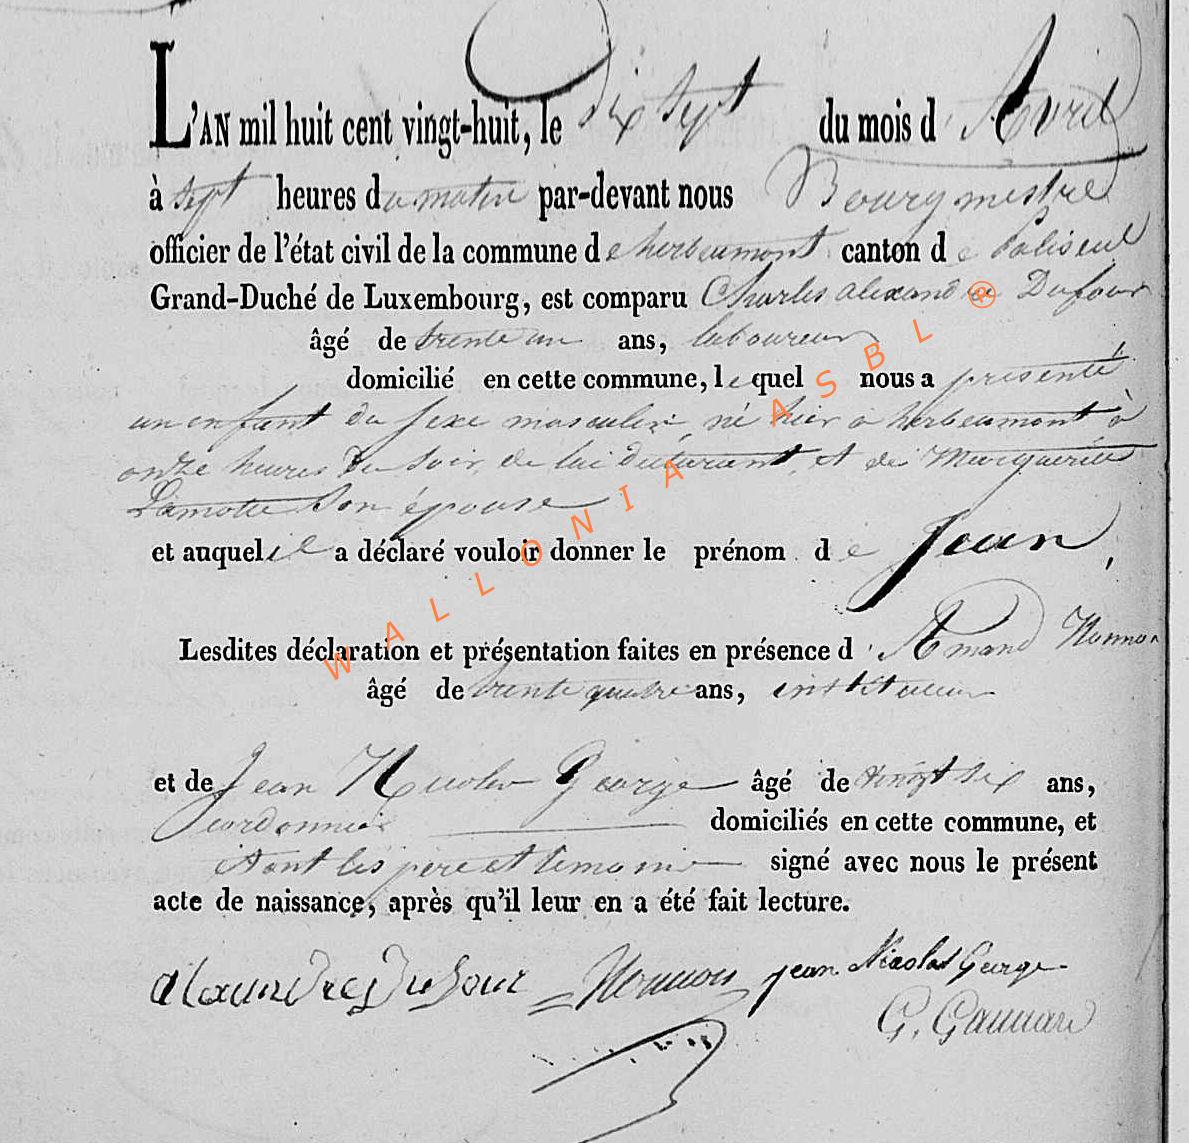 L'AN mil huit cent vingt-huit, le dix sept du mois d'Avril
à sept heures du matin par-devant nous Bourgmestre
officier de l'état civil de la commune de herbeumont canton de Paliseul
Grand-Duché de Luxembourg, est comparu Charles alexandre Dufour
âgé de trente un ans, laboureur
domicilié en cette commune, lequel nous a présenté
un enfant du sexe masculin, né hier à herbeumont à
onze heures du soir, de lui déclarant, et de Marguerite
Lamotte son épouse
et auquel il a déclaré vouloir donner le prénom de Jean,
Lesdites déclaration et présentation faites en présence d'Amand
âgé de trente quatre ans, instituteur
et de Jean Nicolas George âgé de vingt six ans,
cordonnier domiciliés en cette commune, et
ont les père et témoins signé avec nous le présent
acte de naissance, après qu'il leur en a été fait lecture.
alexandre Dufour jean Nicolas George
G.
WALLONIA ASBL ®